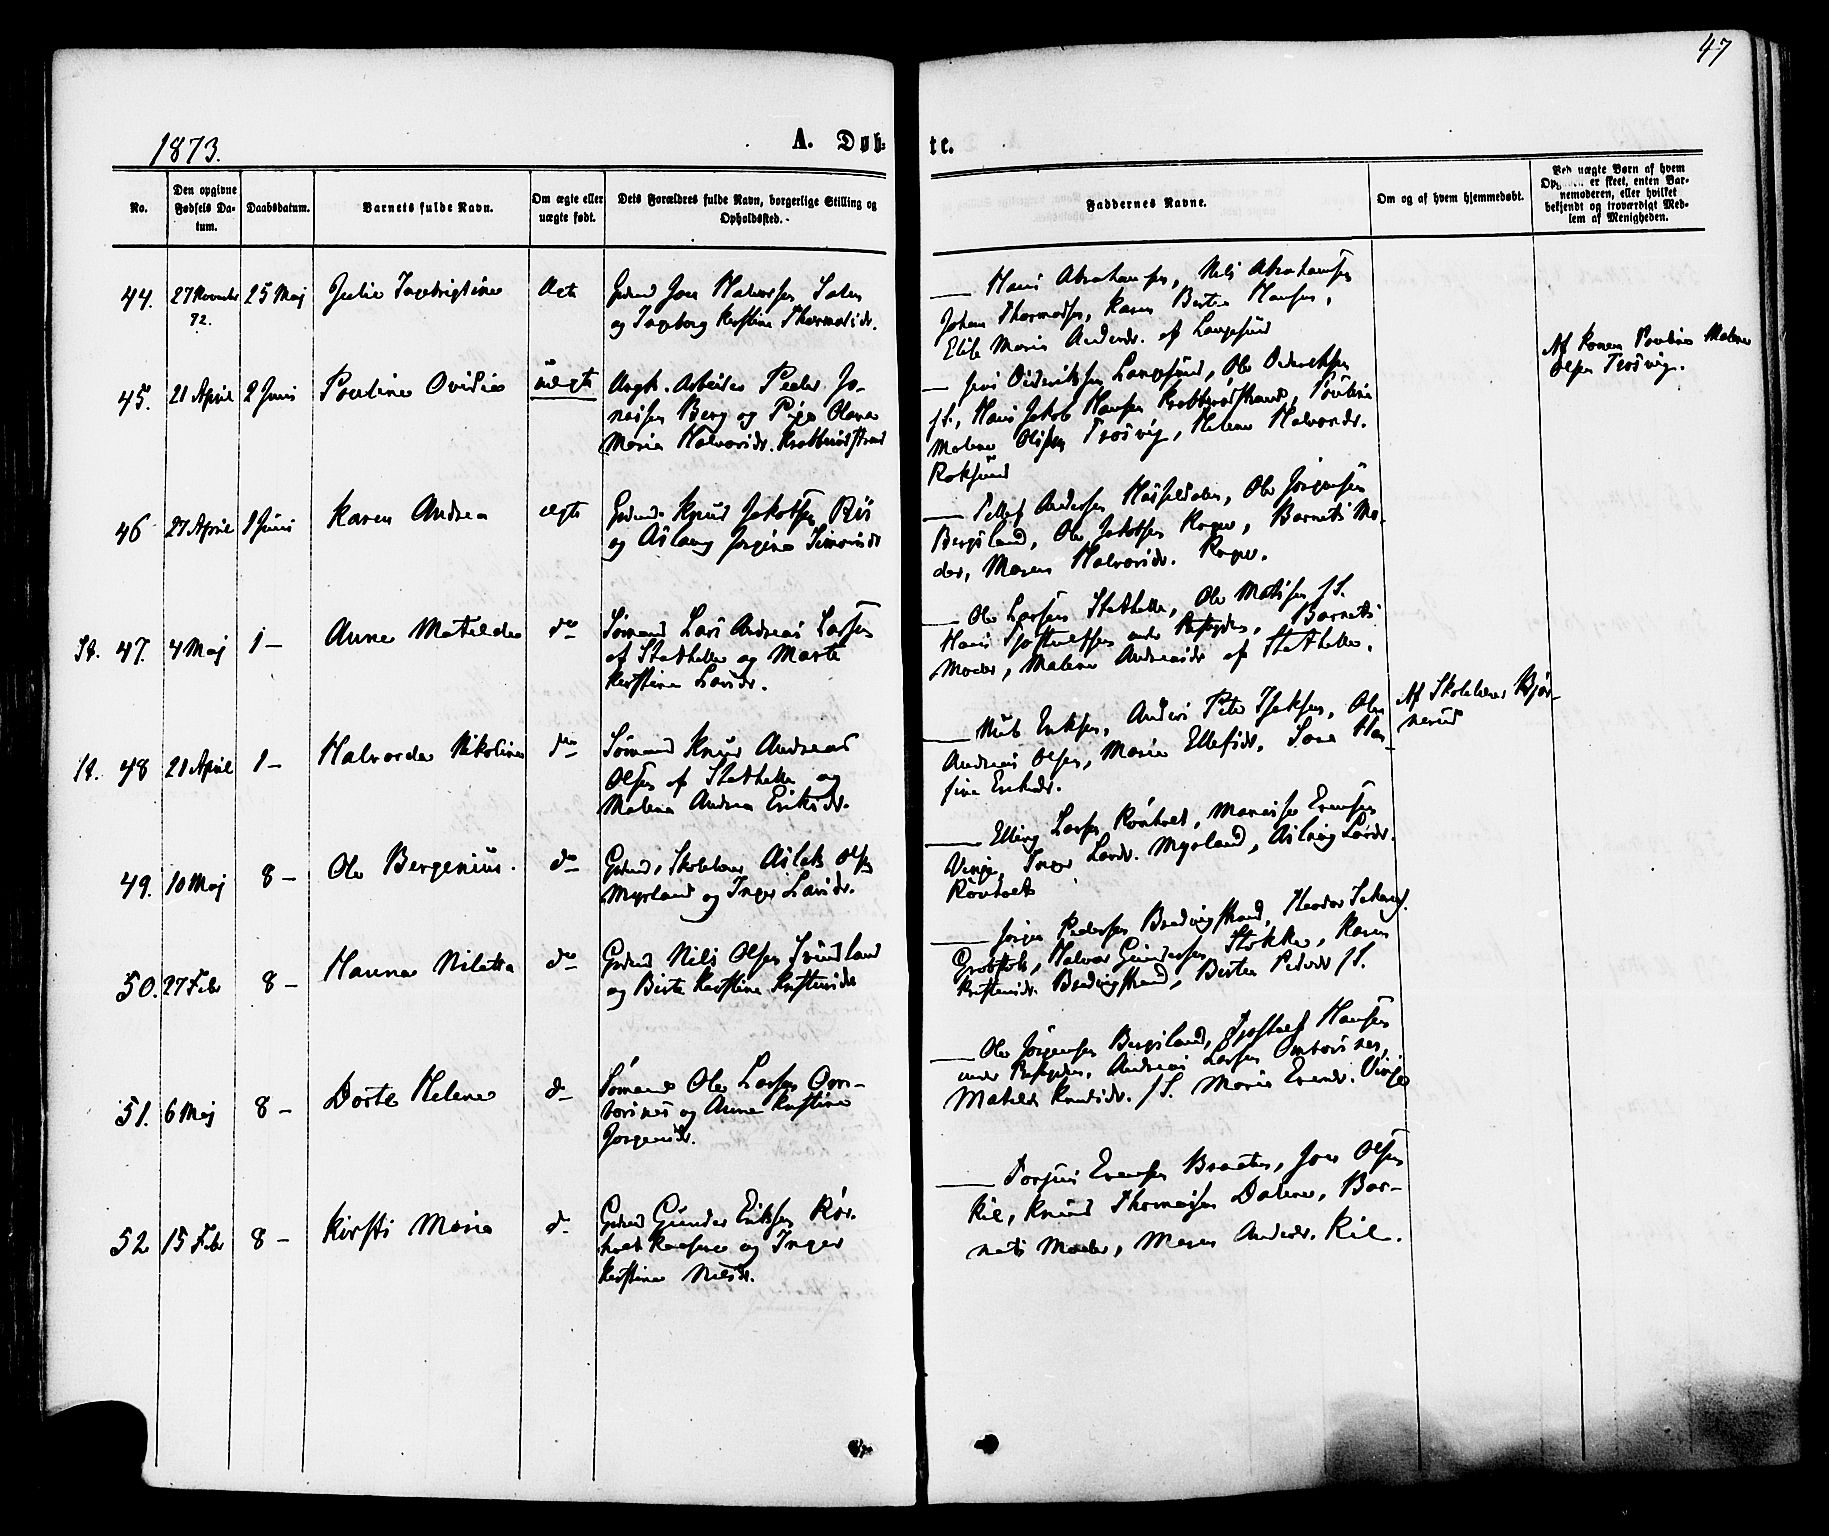 47
1873.
A. Døb-
te.
No.
Den opgivne Fødsels Datum.
Daabsdatum.
Barnets fulde Navn.
Om ægte eller uægte født.
Dets Forældres fulde Navn, borgerlige Stilling og Opholdssted.
Faddernes Navne.
Om og af hvem hjemmedøbt.
Ved uægte Børn af hvem Opgaven er skeet, enten Barnemoderen, eller hvilket bekjendt og troværdigt Medlem af Menigheden.
44. 27 November 72. 25 Maj Julie Ingebrigtine Ægte
Halvorsen
og Ingeborg Kerstine Thormodsdr.
Hans Abrahamsen, Nils Abrahamsen
Johan Thormodsen, Karen Birtea Hansen,
Elise Marie Andersdr. af Langesund
45. 21 April 2 Juni Pouline Ovidia uægte
Ungk. Arbeider Peder Jo-
nassen Berg og Pige Olava
Maria Halvorsdr. Krabberødstrand
Jens Dideriksen Langesund, Ole Dideriksen
sS., Hans Jakob Hansen Krabberødstrand, Pouline
Malene Olsen Trosvig, Helene Halvorsdr.
Roksund
Af Konen Pouline Malene
Olsen Trosvig.
46 27 April 1 Juni Karen Andrea ægte
Knud Jakobsen
og Aslaug Jorgine Simonsdr
Tellef Andersen Hasseldalen, Ole Jørgensen
Bergsland, Ole Jakobsen Rogn, Barnets Mo-
der, Maren Halvorsdr. Rogn.
47. 4 Maj 1 — Anne Matilde do
Sømand Lars Andreas Larsen
af Stathelle og Marte
Kerstine Larsdr.
Ole Larsen Stathelle, Ole Matisen sS.
Hans, Barnets
Moder, Malene Andreasdr af Stathelle.
48 21 April 1 — Halvorda Nikoline do
Sømand Knud Andreas
Olsen af Stathelle og
Malene Andrea Eriksdr.
Eriksen, Anders Peter Isaksen, Ole
Andreas Olsen, Maria Ellefsdr, Sara Han-
sine Eriksdr.
Af Skolelærer Bjør-
nerud
49. 10 Maj 8 — Ole Bergenius. do
Skolelærer Aslak Olsen
Myrland og Inger Larsdr.
Elling Larsen Rønholt, Evensen
Vinje, Inger Larsdr. Myrland, Aslaug Larsdr.
Rønholt
50. 27 Febr 8 — Hanna Niletta do
Nils Olsen Svindland
og Birte Kerstine Kristensdr
Jørgen Pedersen Bredvigstrand, Theodor
Grobstok, Halvor Gundersen Stokke, Karen
Kristensdr. Bredvigstrand, Birtea Pedersdr sS.
51. 6 Maj 8 — Dorte Helene do
Sømand Ole Larsen Om-
borsnes og Anne Kristine
Jørgensdr.
Ole Jørgensen Bergsland, Tjostolf Hansen
Andreas Larsen Omborsnes,
Matilde Knudsdr. sS. Maria Evensdr. Vinje
52 15 Febr 8 — Kirsti Maria do
Gunder Eriksen Rør-
holt og Inger
Kerstine Nilsdr.
Torjus Evensen Braaten, Jon Olsen
Kil, Knud Thomassen Dalene, Bar-
nets Moder, Maren Andersdr. Kil.